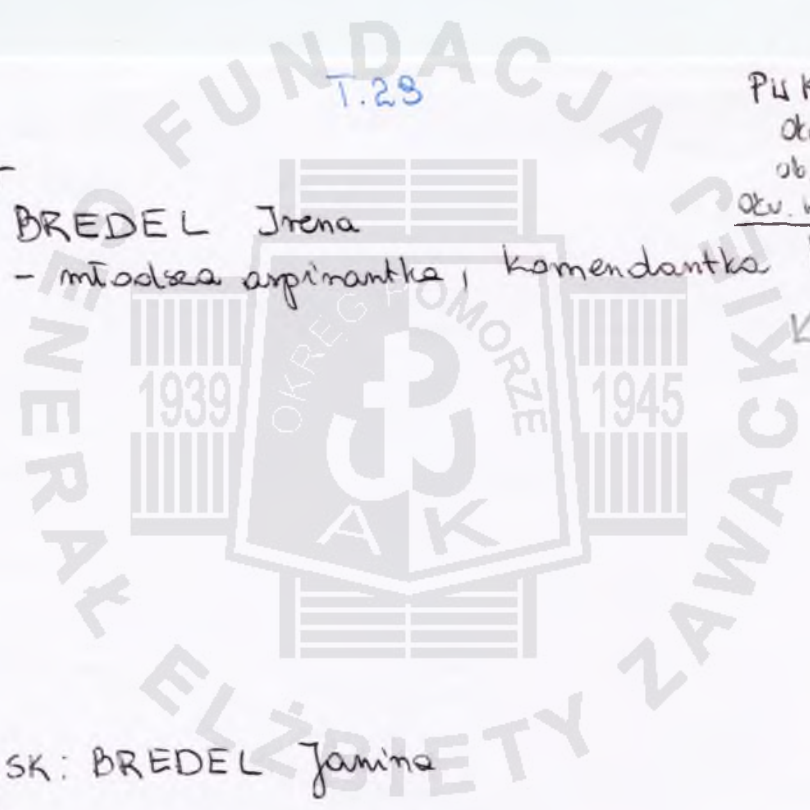 T.29
BREDEL Irena
- młodsza aspirantka, komendantka
sk: BREDEL Janina
FUNDACJA GENERAŁ ELŻBIETY ZAWACKIEJ
OKRĘG POMORZE
1939
1945
AK